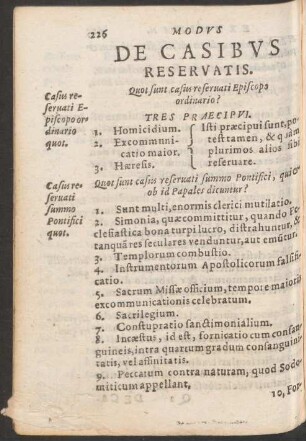 226 MODVS
DE CASIBVS
RESERVATIS.
Quot sunt casus reseruati Episcopo
ordinario?
Casus re-
seruati E-
piscopo or-
dinario
quot.
TRES PRÆCIPVI.
1. Homicidium.
2. Excommuni-
catio maior.
3. Hæresis.
Isti præcipui sunt, po-
test tamen, & quam
plurimos alios sibi
reseruare.
Casus re-
seruati
summo
Pontifici
quot.
Quot sunt casus reseruati summo Pontifici, qui
ob id Papales dicuntur?
1. Sunt multi, enormis clerici mutilatio.
2. Simonia, quæ committitur, quando
clesiastica bona turpi lucro, distrahuntur, &
tanquã res seculares venduntur, aut emũtur.
3. Templorum combustio.
4. Instrumentorum Apostolicorum falsifi-
catio.
5. Sacrum Missæ officium, tempore maioris
excommunicationis celebratum.
6. Sacrilegium.
7. Constupratio sanctimonialium.
8. Incæstus, id est, fornicatio cum consan-
guineis, intra quartum gradum consanguini-
tatis, vel affinitatis.
9. Peccatum contra naturam, quod Sodo-
miticum appellant,
10, For-